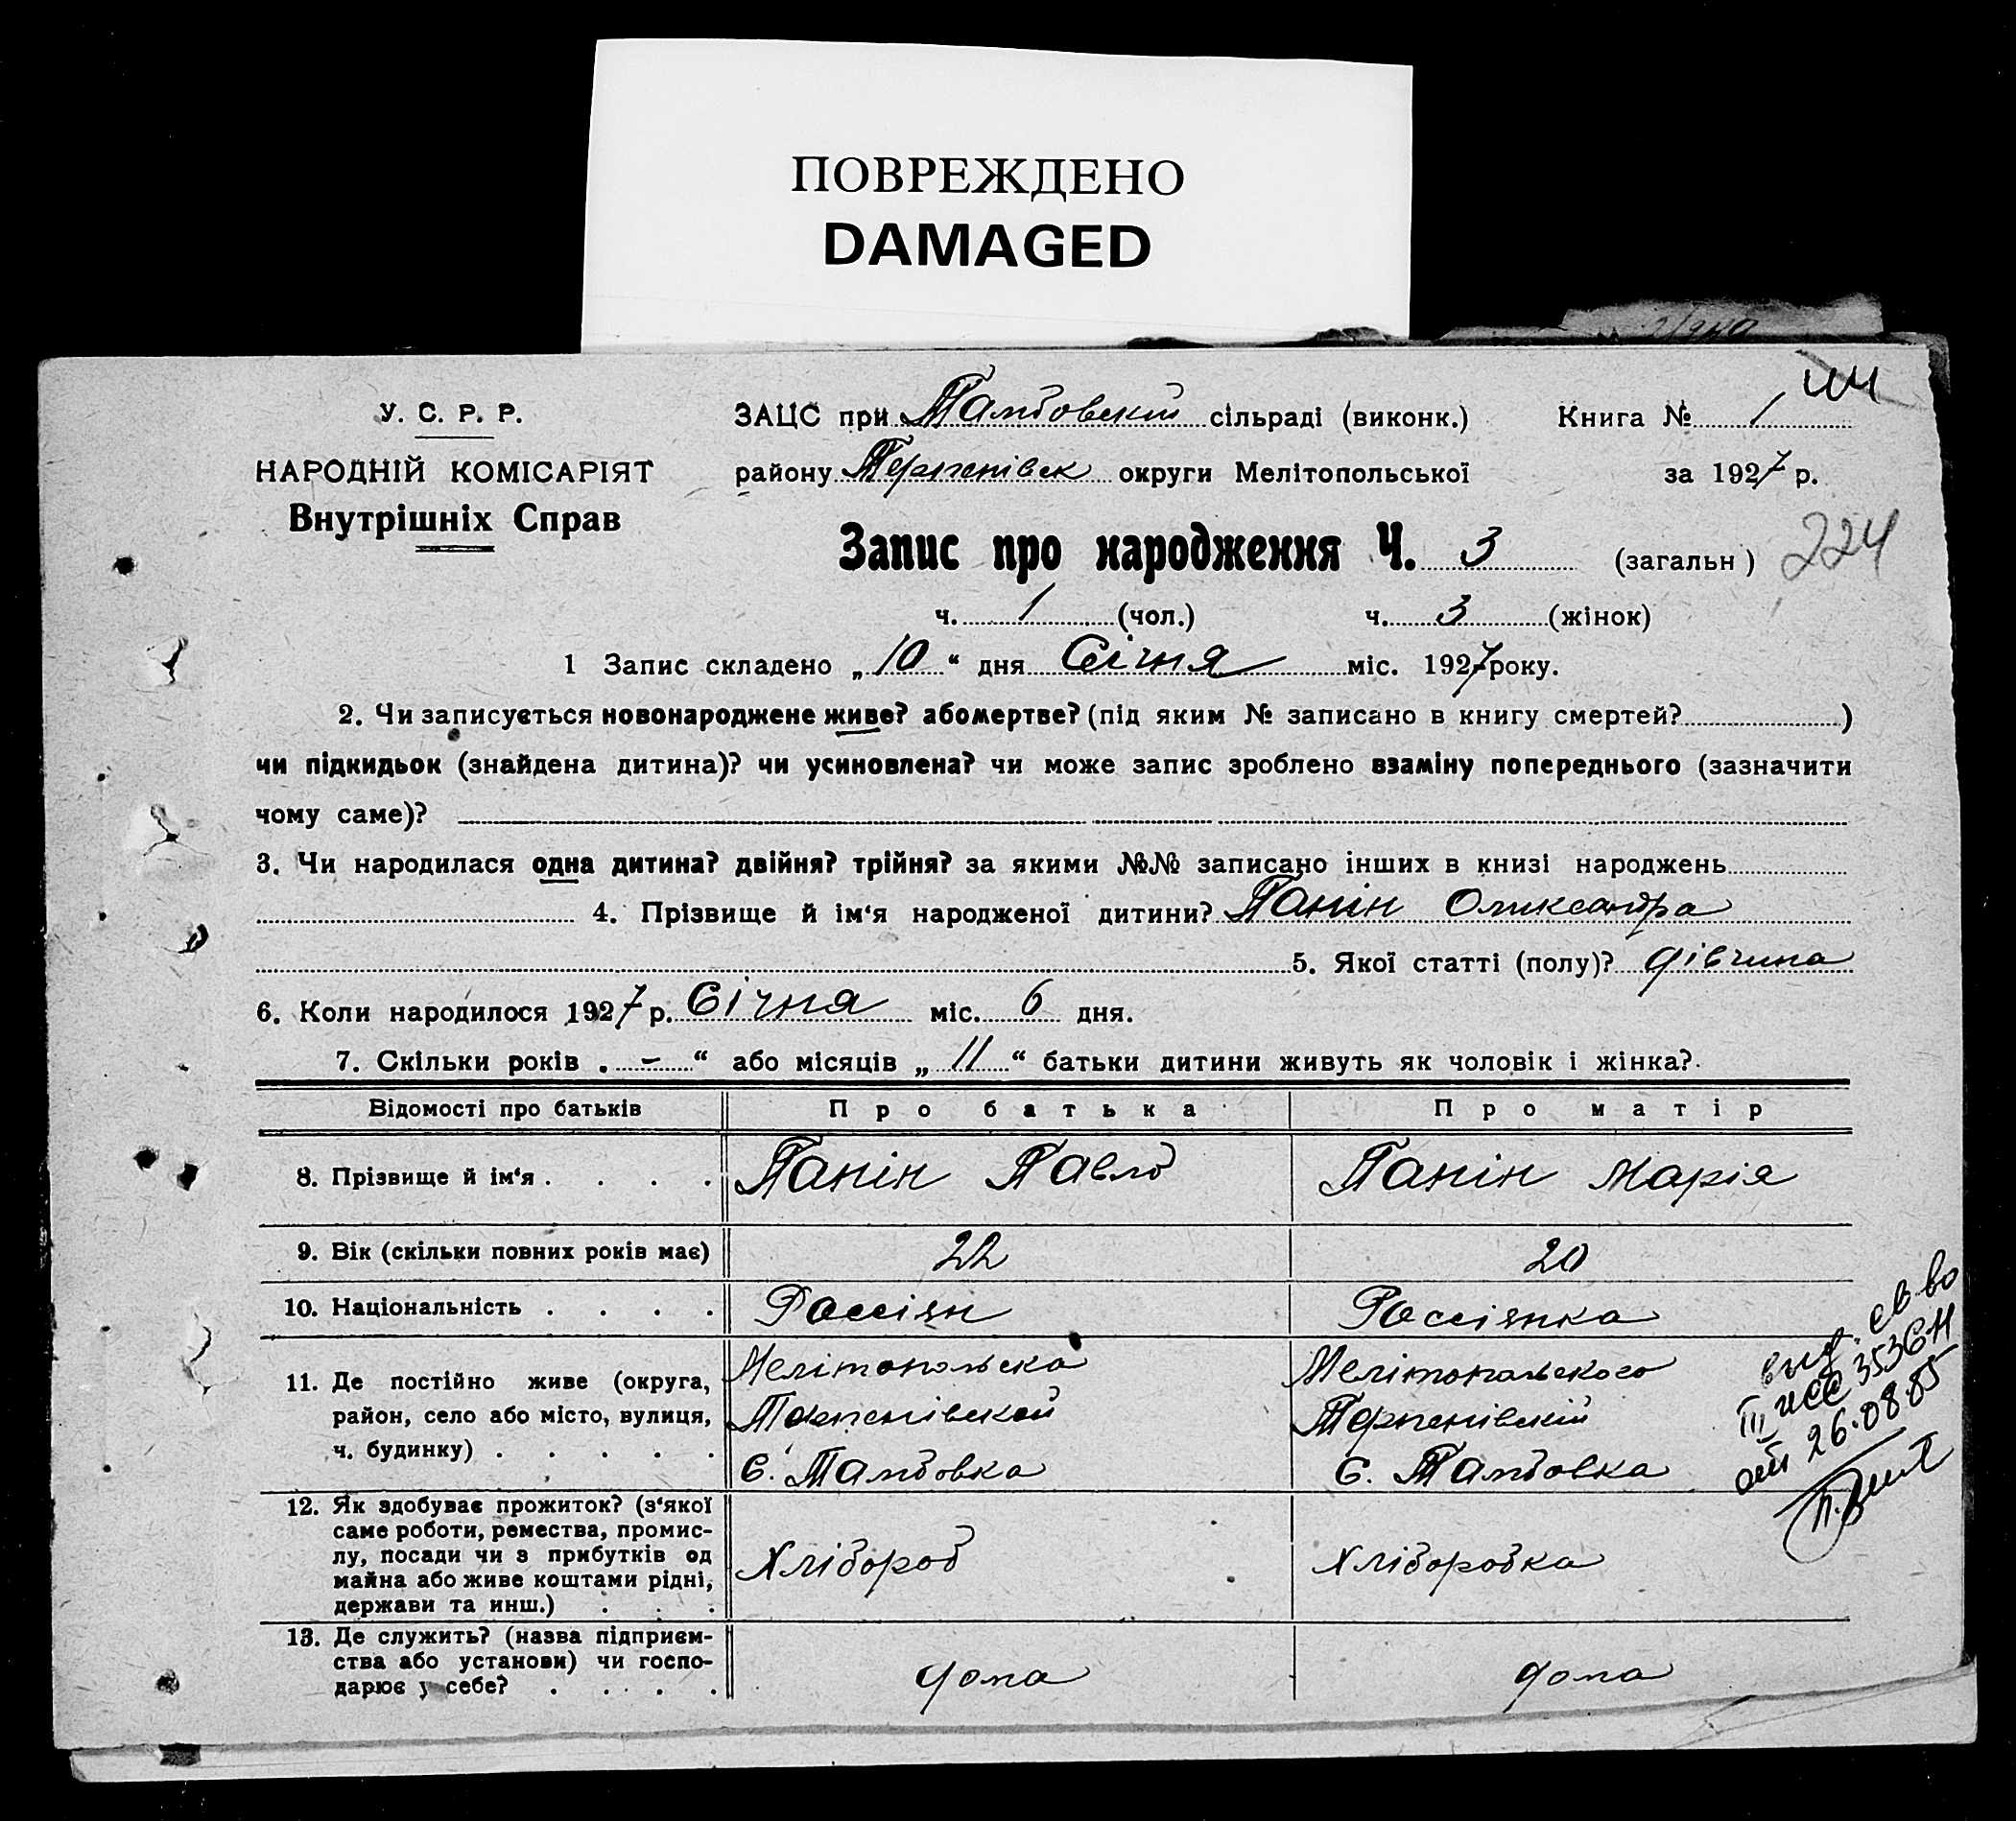 ПОВРЕЖДЕНО
DAMAGED
У. С. Р. Р.
НАРОДНІЙ КОМІСАРІЯТ
Внутрішніх Справ
ЗАЦС при Тамбовскій сільраді (виконк.) Книга № 1
району Терпенівск округи Мелітопольської за 1927 р.
Запис про народження Ч. 3 (загальн) 224
ч. 1 (чол.) ч. 3 (жінок)
1 Запис складено „10“ дня Січня міс. 1927 року.
2. Чи записується новонароджене живе? або мертве? (під яким № записано в книгу смертей? )
чи підкидьок (знайдена дитина)? чи усиновлена? чи може запис зроблено взаміну попереднього (зазначити
чому саме)?
3. Чи народилася одна дитина? двійня? трійня? за якими №№ записано інших в книзі народжень
4. Прізвище й ім‘я народженої дитини? Панін Олександра
5. Якої статті (полу)? дівчина
6. Коли народилося 1927 р. Січня міс. 6 дня.
7. Скільки років . - “ або місяців „ 11 “ батьки дитини живуть як чоловік і жінка?
Відомості про батьків Про батька Про матір
8. Прізвище й ім‘я . . . . Панін Павло Панін Марія
9. Вік (скільки повних років має) 22 20
10. Національність . . . . Россіян Россіянка
11. Де постійно живе (округа,
район, село або місто, вулиця,
ч. будинку) . . . . .
Мелітопольска
Терпенівской
С. Тамбовка
Мелітопольского
Терпенівскій
С. Тамбовка
12. Як здобуває прожиток? (з‘якої
саме роботи, ремества, промис-
лу, посади чи з прибутків од
майна або живе коштами рідні,
держави та инш.) . . .
Хлібороб
Хліборобка
13. Де служить? (назва підприєм-
ства або установи) чи госпо-
дарює у себе? . . . .
дома
дома
выд. св-во
III ЖС 353611
от 26.08.85